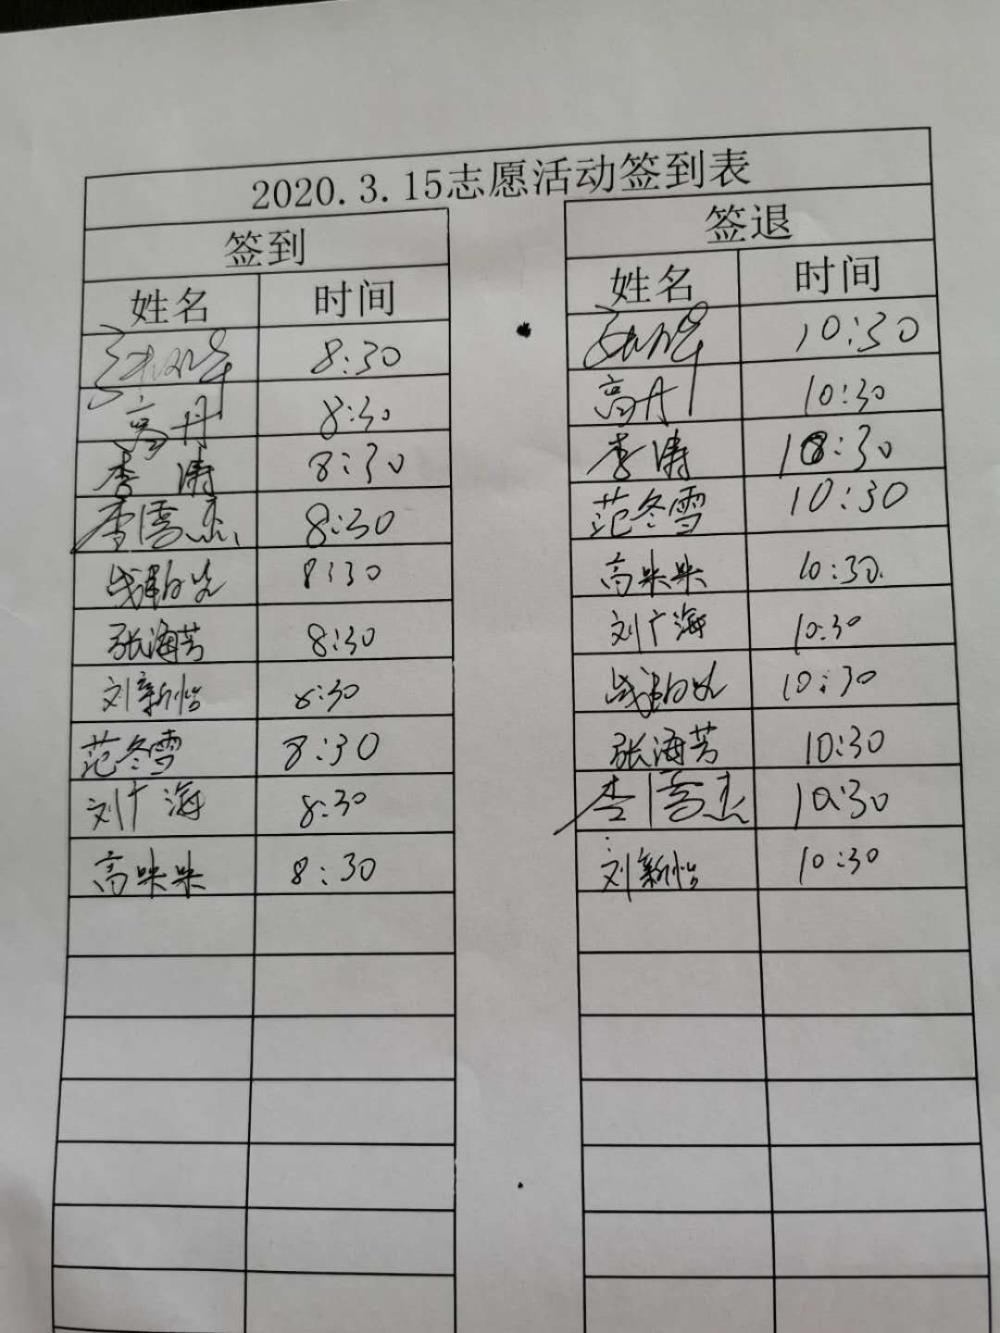 2020.3.15志愿活动签到表
签到 签退
姓名 时间 姓名 时间
8:30 10:30
高丹 8:30 高丹 10:30
李涛 8:30 李涛 10:30
李雪杰 8:30 范冬雪 10:30
8:30 高咪咪 10:30
张海芳 8:30 刘广海 10:30
刘新怡 8:30 10:30
范冬雪 8:30 张海芳 10:30
刘广海 8:30 李雪杰 10:30
高咪咪 8:30 刘新怡 10:30